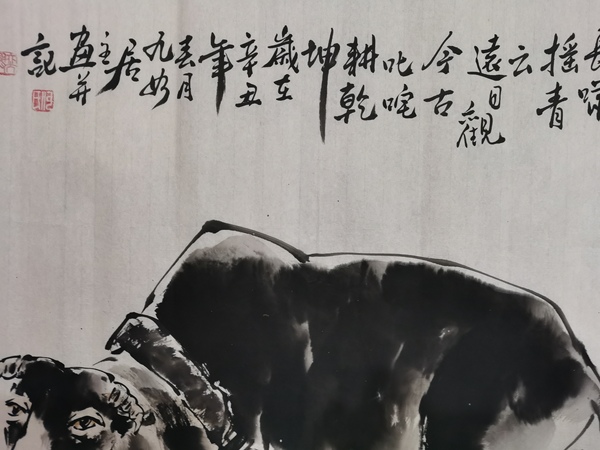 長嘯
摇青
云
遠目觀
今古
叱咤
耕乾
坤
歲在
辛丑
年
春月
九如
居
主
畫并
記